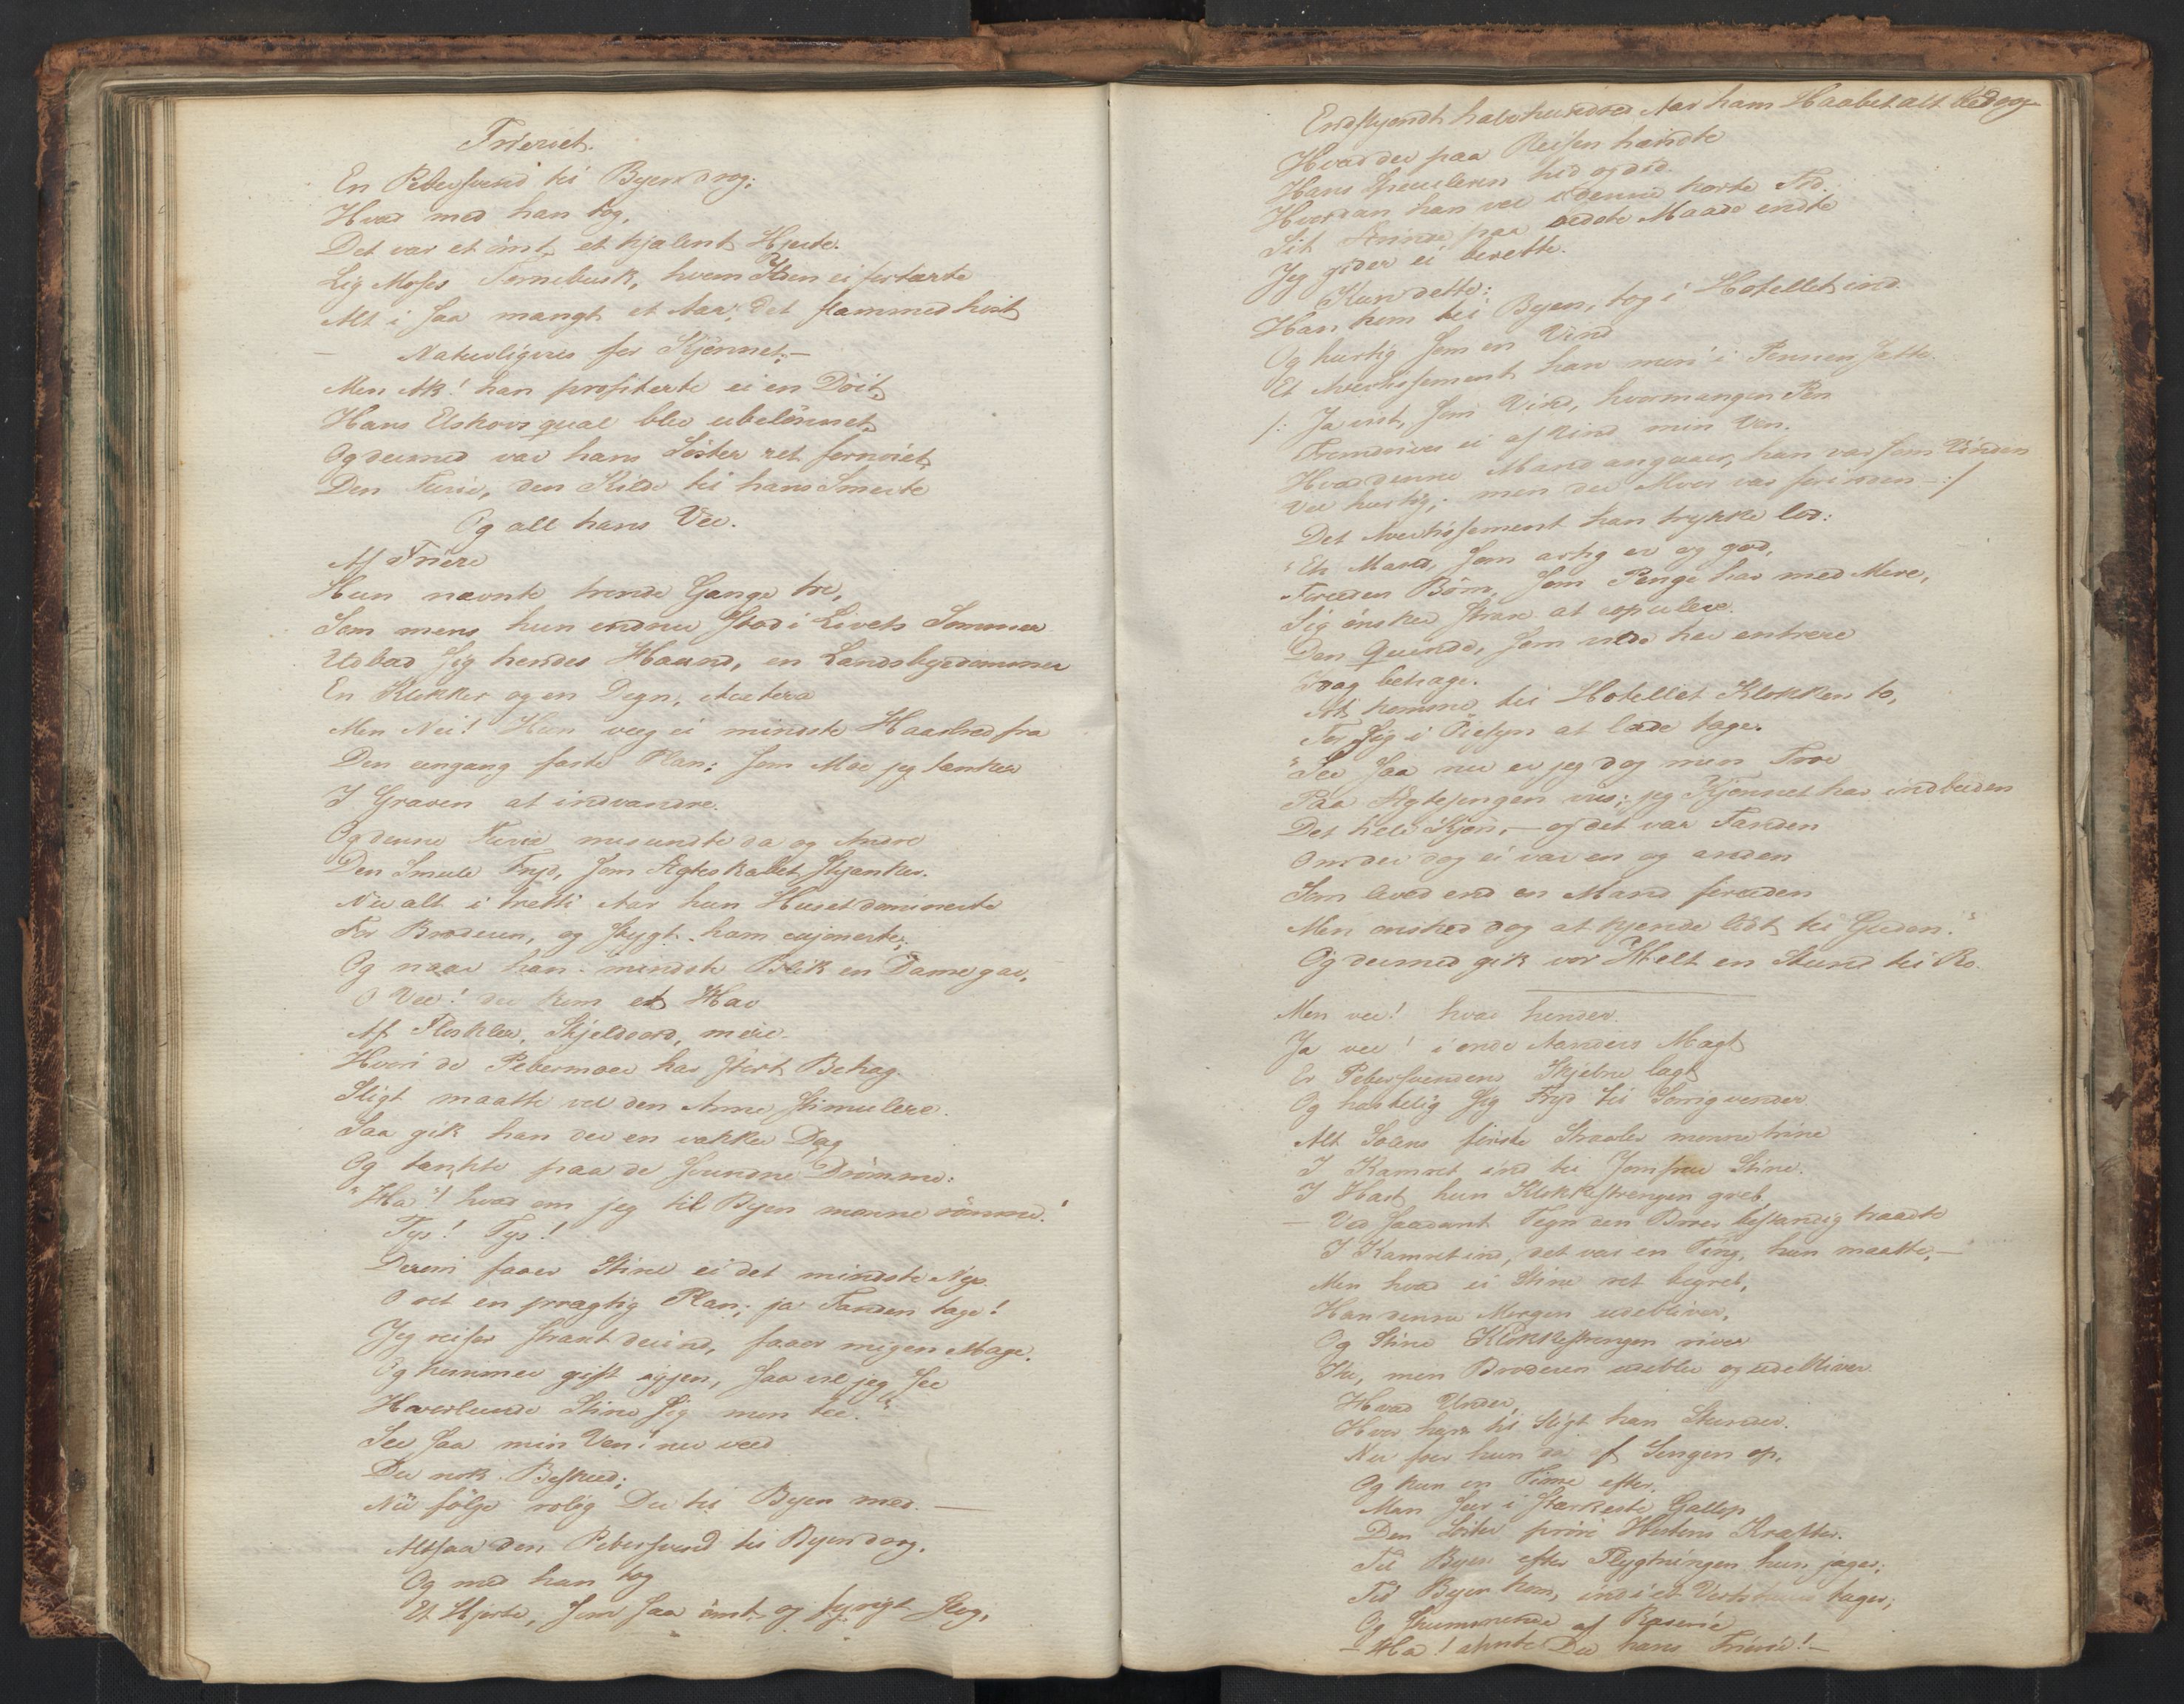 Frieriet.
En Pebersvend til Byen drog;
Hvad med han tog,
Det var et ömt, et kjælent Hjerte.
Lig Moses Tornebusk, hvem Ilden ei fortærte
Alt i saa mangt et Aar; det flammed hist
— Naturligviis for Kjönnet. —
Men Ak! han profiterte ei en Döit,
Hans Elskovsqual blev ubelönnet,
Og dermed var hans Söster ret fornöiet,
Den Furie, den Kilde til hans Smerte
Og all hans Vee.
Af Friere
Hun nævnte trende Gange tre,
Som mens hun endnu stod i Livets Sommer
Udbad sig hendes Haand, en Landsbyedommer
En Klokker og en Degn, etcetera
Men Nei! Hun veeg ei mindste Haarbred fra
Den eengang faste Plan: som Möe jeg tænker
I Graven at indvandre.
Og denne Furie misundte da og Andre
Den Smule Fryd, som Ægteskabet skjænker.
Nu alt i tretti Aar hun Huset dominerte
For Broderen, og stygt ham cujonerte;
Og naar han mindste Blik en Dame gav,
O Vee! der kom et Hav
Af Floskler, Skjeldsord, mere
Hvori de Pebermöer har stort Behag.
Sligt maatte vel den Arme stimulere.
Saa gik han der en vakker Dag
Og tænkte paa de svundne Drömme:
"Ha"! hvad om jeg til Byen monne römme!
Tys! Tys!
Derom faaer Stine ei det mindste Nys.
O ret en prægtig Plan; ja Fanden tage!
Jeg reiser strax derind, faaer mig en Mage,
Og kommer gift igjen, saa vil jeg see
Hvorlunde Stine sig mon tee."
See saa min Ven! nu veed
Du nok Beskeed;
Nu fölge rolig Du til Byen med. —
Altsaa den Pebersvend til Byen drog,
Og med han tog
Et Hjerte, som saa ömt og fyrigt slog,
Endskjöndt halvhundred Aar ham Haabet alt bedrog
Hvad der paa Reisen hændte
Hans Speculeren hid og did.
Hvordan han vel i denne korte Tid
Sit Ærinde paa bedste Maade endte
Jeg gider ei berette.
Kun dette:
Han kom til Byen, tog i Hotellet ind.
Og hurtig som en Vind
Et Avertissement han mon i Pennen sætte.
/: Ja vist, som Vind, hvormangen Pen
Fremdrives ei af Vind min Ven.
Hvad denne Mand angaaer, han var som Vinden
Vel hurtig; men der Alvor var forinden — :/
Det Avertissement han trykke lod:
"En Mand, som artig er og god,
Foruden Börn, som Penge har med Mere,
Sig önsker strax at copulere.
Den Qvinde, som vilde her entrere
Idag behage.
At komme til Hotellet Klokken to,
For sig i Öiesyn at lade tage.
"See saa nu er jeg dog min Troe
Paa Ægtesengen viis; jeg Kjönnet har indbuden
Det hele Kjön, — og det var Fanden
Om der dog ei var en og anden
Som leved end en Mand foruden
Men önsked dog at kjende lidt til Guden."
Og dermed gik vor Helt en Stund til Ro.
Men vee! hvad hender.
Ja vee! i onde Aanders Magt
Er Pebersvendens Skjebne lagt
Og hastelig sig Fryd til Sorrig vender.
Alt Solens förste Straaler monne trine
I Kamret ind til Jomfrue Stine.
I Hast hun Klokkestrengen greb,
— Ved saadant Tegn den Broer bestandig traadte
I Kamret ind, det var en Ting, han maatte, —
Men hvad ei Stine ret begreb,
Han denne Morgen udebliver,
Og Stine Klokkestrengen river
Itu, men Broderen udeblev og udebliver.
Hvad Under,
Nu foer hun da af Sengen op,
Og kun en Time efter,
Man seer i stærkeste Gallop
Den Söster pröve Hestens Kræfter.
Til Byen efter Flygtningen hun jager;
Til Byen kom, ind i et Vertshuus tager;
Og skummende af Raserie
— Ha! ahnte Du hans Frierie! —